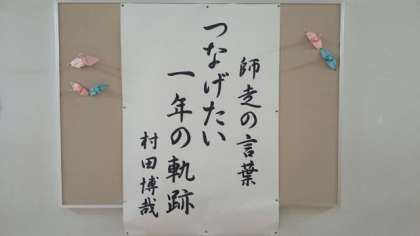 師走の言葉
つなげたい
一年の軌跡
村田博哉